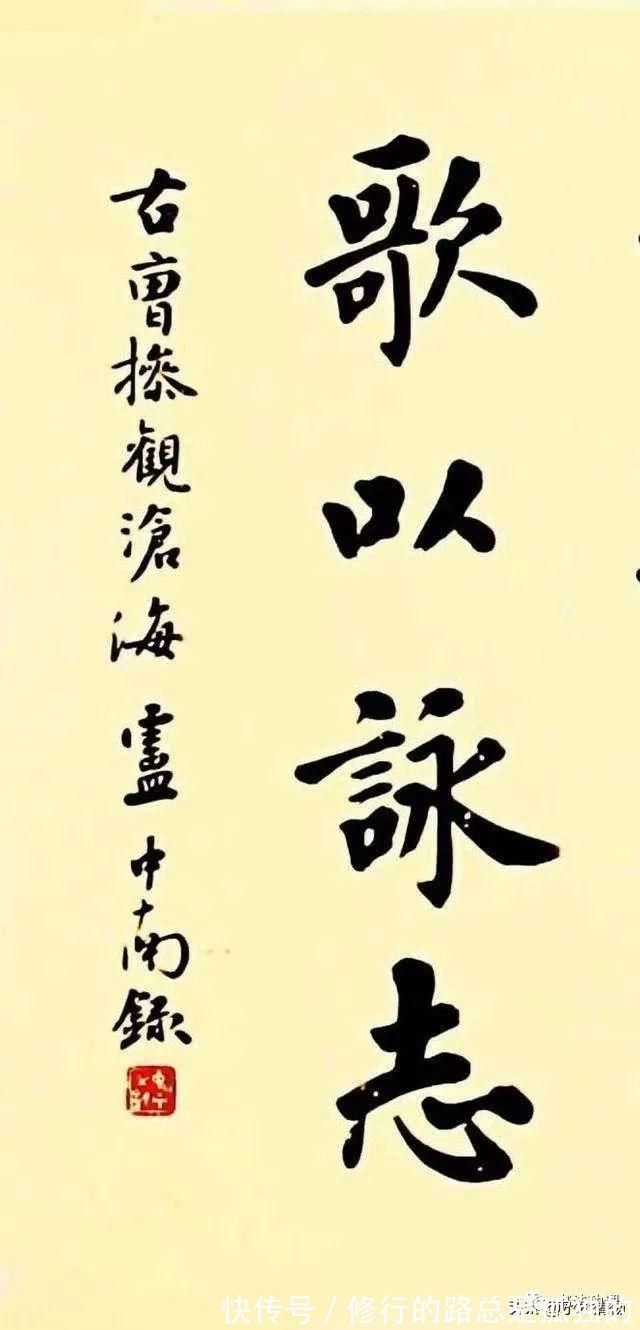 歌以詠志
古曹操觀滄海 盧中南錄
快传号 / 修行的路总是孤独的